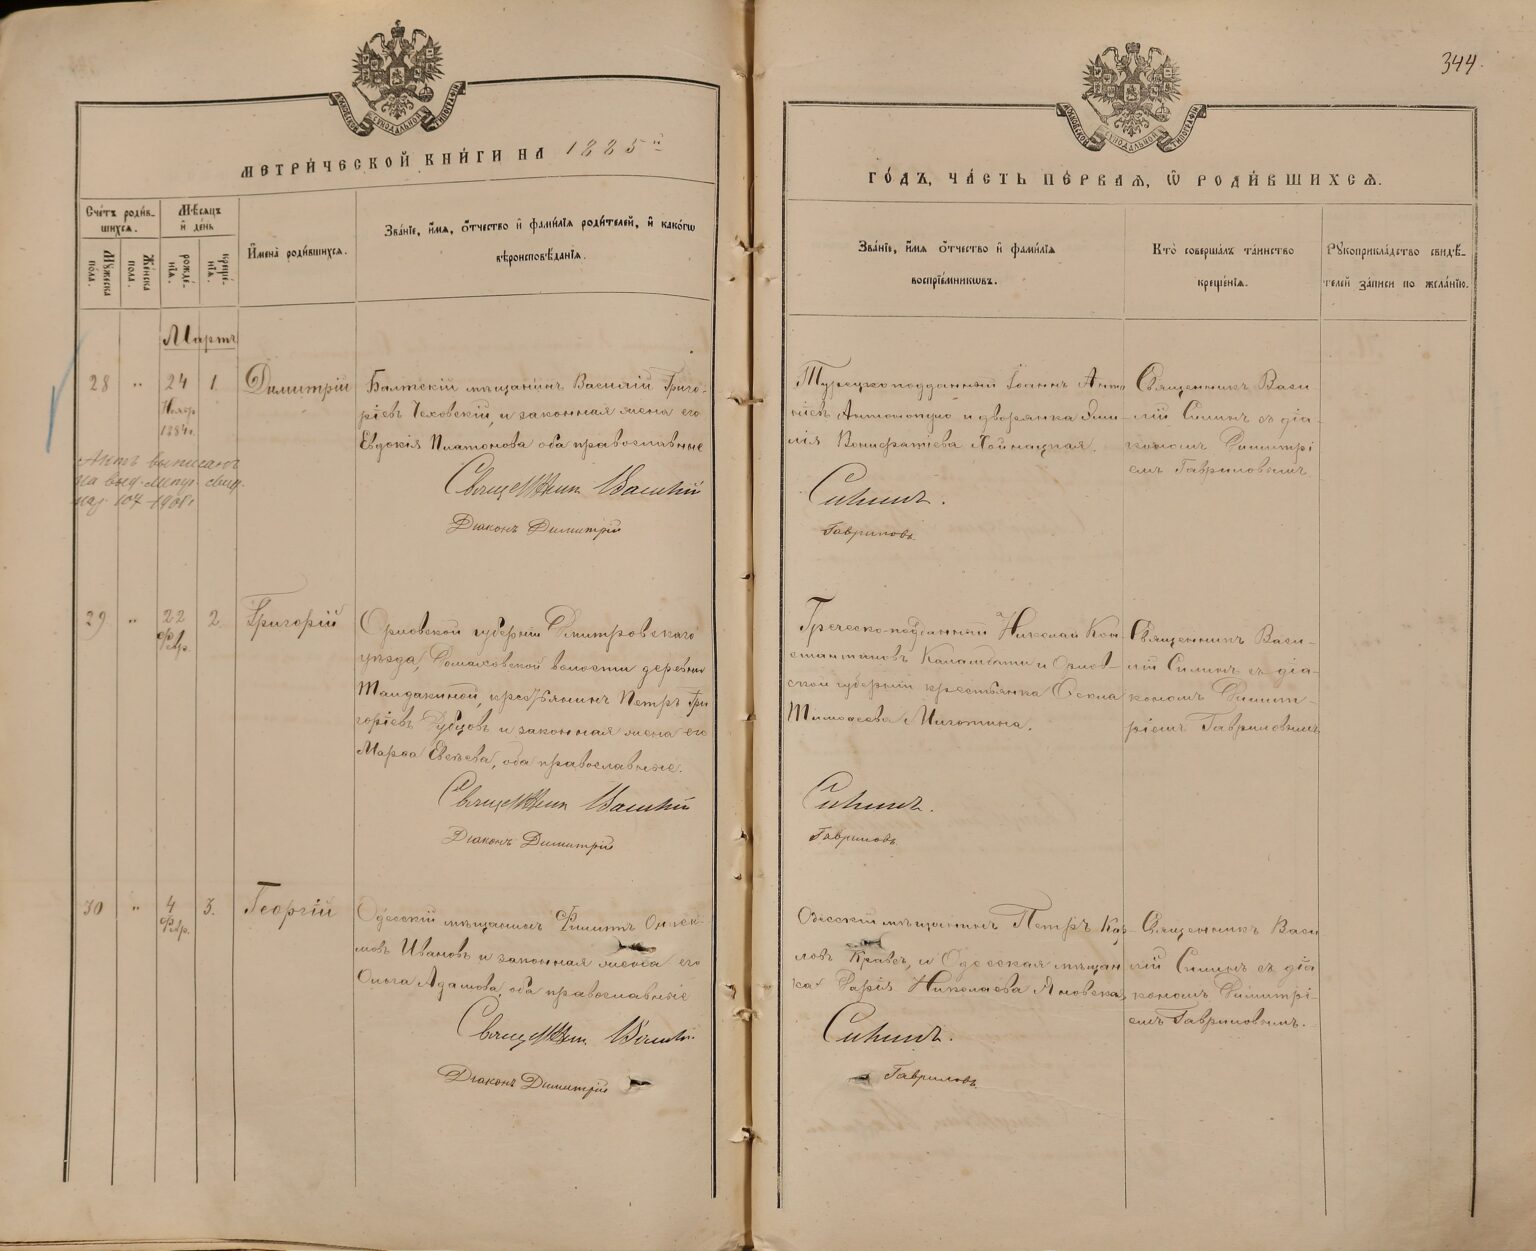 344.
МЕТРИ́ЧЕСКОЙ КНИ́ГИ НА 1885й
ГО́ДЪ, ЧА́СТЬ ПЕ́РВАЯ, Ѿ РОДИ́ВШИХСЯ.
Сче́тъ роди́в-
шихся.
Му́жеска пола.
Же́нска пола.
Мѣ́сяцъ и де́нь
рожде́-
нія.
креще́-
нія.
И́мена роди́вшихся.
Зва́нїе, и́мя, ѻ́тчество и фами́лїя роди́телей, и како́гѡ
вѣроисповѣ́данїя.
Зва́нїе, и́мя ѻ́тчество и фами́лїя
воспрїе́мникѡвъ.
Кто̀ соверша́лъ та́инство
креще́нїя.
Рꙋкоприкла́дство свидѣ́-
телей за́писи по жела́нїю.
Мартъ
28 " 24 1. Димитрій
Ноябр
1884 г.
Балтскій мѣщанинъ Василій Григо-
ріевъ Чеховскій, и законная жена его
Евдокія Платонова оба православные
Священник Василій
Діаконъ Димитрій
Турецко подданный Іоаннъ Анто
ніевъ Антонопуло и дворянка Эми-
лія Вонифатіева Хойнацкая.
Сикинъ.
Гавриловъ.
Священникъ Васи-
лій Сикинъ съ діа-
кономъ Димитрі
емъ Гавриловымъ
Актъ выписанъ
на
107 1901 г
29 " 22 2. Григорій
Февр.
Орловской губерніи Дмитровскаго
уѣзда, Домаховской волости деревни
крестьянинъ Петръ Гри
горіевъ и законная жена его
Марѳа Евсѣева, оба православные.
Священник Василій
Діаконъ Димитрій
Греческо-подданный Николай Кон-
стантиновъ и Орлов-
ской губерніи крестьянка Ѳекла
Тимоѳеева Миготина.
Сикинъ.
Гавриловъ.
Священникъ Васи-
лій Сикинъ съ діа-
кономъ Димит-
ріемъ Гавриловымъ
30 " 4 3. Георгій
Февр.
Одесскій мѣщанинъ Филиппъ Ониси-
мовъ Ивановъ и законная жена его
Ольга Адамова, оба православные
Священник Василій
Діаконъ Димитрій
Одесскій мѣщанинъ Петръ Кар-
ловъ Кравец, и Одесская мѣщан
ка Дарія Николаева Яновская,
Сикинъ.
Гавриловъ
Священникъ Васи
лій Сикинъ съ діа
кономъ Димитрі-
емъ Гавриловымъ.